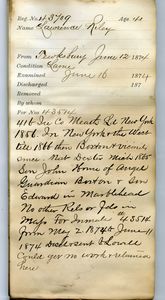 Reg. No. 43709 Age 41
Name Lawrence Riley
From Tewksbury June 12 1874
Condition Lame
Examined June 16 1874
Discharged 187
Removed
By whom
For No 43574
416 Co Meath Le New York
1856. In New York & the West
till 1866 then Boston & vicinity
since. Not Dectis 1865
Son John Home of Angel
Guardian Boston & Son
Edward in Marblehead
No other Rels or Jelo in
Mass For Inmate 43574
from May 2 1874 to June 11
1874 Lowell
Could get no work returned
here